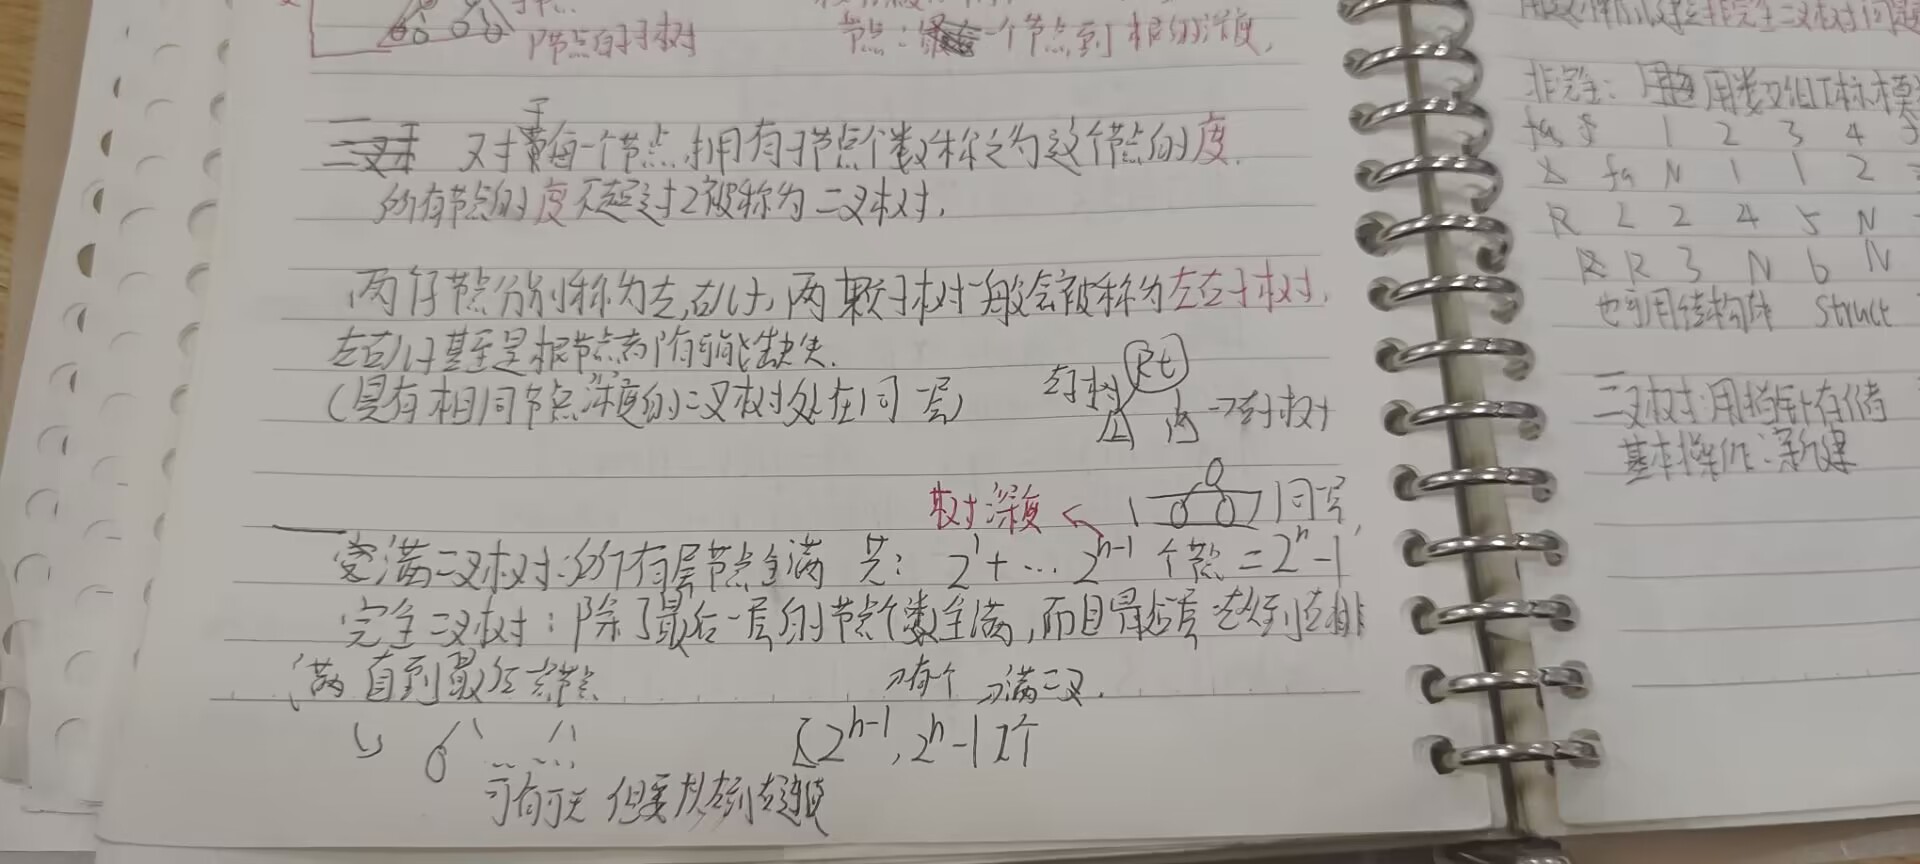 节点的子树
节点：一个节点到根的深度，
对每一个节点，拥有子节点个数称之为这个节点的度.
所有节点的度不超过2被称为二叉树.
两仔节点分别称为左,右儿子,两颗子树一般会被称为左右子树.
左右儿子甚至是根节点都有可能缺失.
(具有相同节点深度的二叉树处在同一层)
Rt
左子树
右子树
树深度
同层
满二叉树:所有层节点全满 共: 2¹+...2ʰ⁻¹ 个节点=2ʰ-1
完全二叉树:除了最后一层的节点个数全满,而且最后层 从左到右排
满 直到最后 节点
只有个 满二叉.
[2ʰ⁻¹, 2ʰ-1]个
可有可无 但要从左到右连续
非完全: 用数组下标模
fa 1 2 3 4
fa N 1 1 2
L 2 4 5 N
R 3 N 6 N
也可用结构体 Struct
二叉树:用指针存储
基本操作:新建